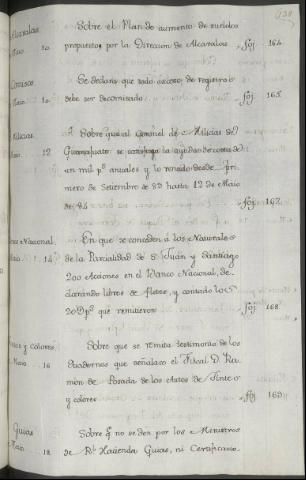 Alcavalas
Mayo 10
Sobre el Plan de aumento de sueldos
propuestos por la Direccion de Alcavalas foj. 164.
Comisos
Mayo 10
Se declara que todo exceso de registro
debe ser decomisado foj. 165.
Milicias
Mayo 12
Sobre que al Coronel de Milicias de
Guanajuato se
un mil p.s anuales y lo vencido desde Pri-
mero de Setiembre de 82 hasta 12 de Maio
de 84 foj. 167.
Banco Nacional
Maio 14
En que se conceden á los Naturales
de la Parcialidad de S. Juan y Santiago
200 Acciones en el Banco Nacional, de-
clarando libres de fletes, y contado los
20 D p.s que remitieron foj. 168.
Tintes y colores
Maio 16
Sobre que se remita testimonio de los
Quadernos que señala el Fiscal D. Ra-
món de Posada de los Autos de Tintes
y colores foj. 169.
Guias
Maio 18
Sobre q. no se den por los Ministros
de R.l Hazienda Guias, ni Certificacio-